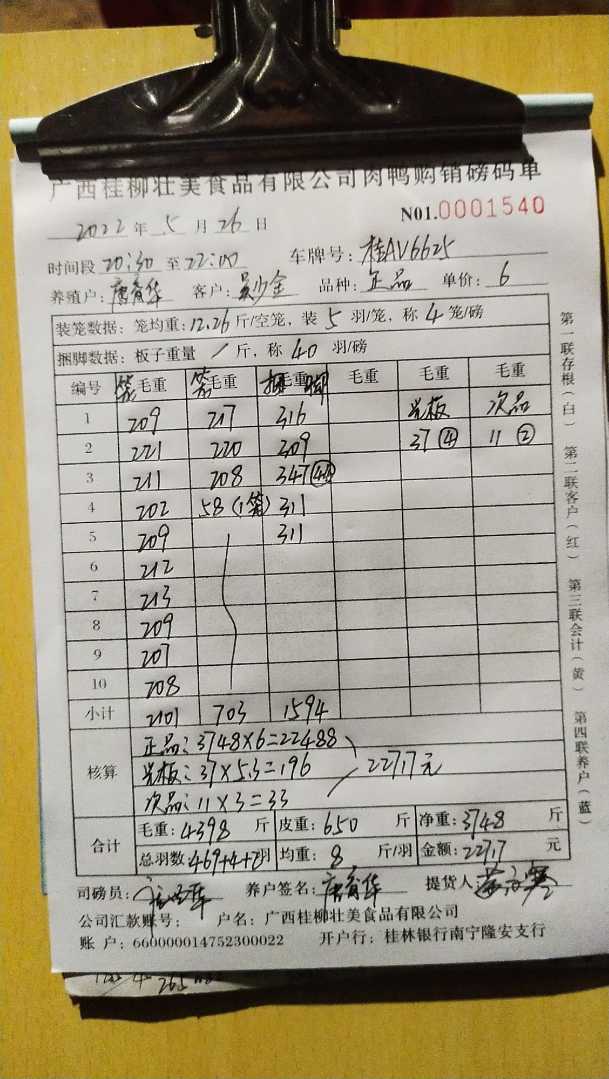 广西桂柳壮美食品有限公司肉鸭购销磅码单
2022年5月26日 NO1.0001540
时间段 20:30 至 22:00 车牌号: 桂AV6625
养殖户: 唐育华 客户: 吴少金 品种: 正品 单价: 6
装笼数据: 笼均重: 12.26 斤/空笼, 装 5 羽/笼, 称 4 笼/磅
捆脚数据: 板子重量 / 斤, 称 40 羽/磅
编号 笼毛重 笼毛重 捆毛重脚 毛重 毛重 毛重
1 209 217 316 光板 次品
2 221 220 309 37 ④ 11 ②
3 211 208 347
4 202 58(1笼) 311
5 209 311
6 212
7 213
8 209
9 207
10 208
小计 2101 703 1594
核算
正品: 3748×6=22488
光板: 37×5.3=196
次品: 11×3=33
22717元
合计
毛重: 4398 斤 皮重: 650 斤 净重: 3748 斤
总羽数: 469+4+2羽 均重: 8 斤/羽 金额: 22717 元
司磅员: 养户签名: 唐育华 提货人:
公司汇款账号: 户名: 广西桂柳壮美食品有限公司
账户: 660000014752300022 开户行: 桂林银行南宁隆安支行
第一联存根(白) 第二联客户(红) 第三联会计(黄) 第四联养户(蓝)